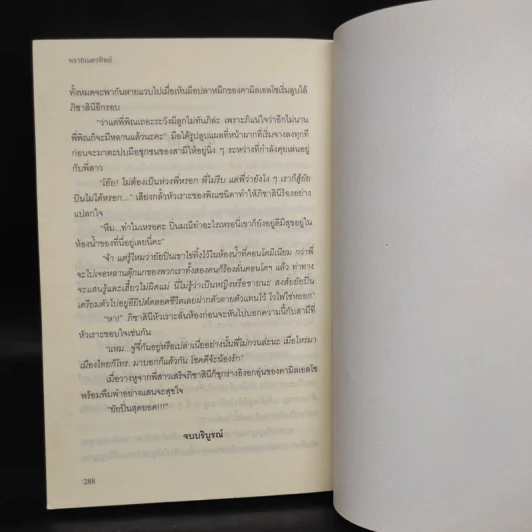 พราวเนตรทิพย์
ทั้งหมดจะพากันหายแวบไปเมื่อเห็นมือปลาหมึกของคามิลเอลโซเริ่มลูบไล้
ภิชาสินีอีกรอบ
“ว่าแต่พี่พิณเถอะระวังมีลูกไม่ทันภิล่ะ เพราะภิแน่ใจว่าอีกไม่นาน
พี่พิณก็จะมีหลานแล้วนะคะ” มือได้รูปลูบแผลที่หน้าผากที่เริ่มจางลงทุกที
ก่อนจะมาตะปบมือซุกซนของสามีให้อยู่นิ่ง ๆ ระหว่างที่กำลังคุยเล่นอยู่
กับพี่สาว
“โอ๊ย! ไม่ต้องเป็นห่วงพี่หรอก พี่ไม่รีบ แต่พี่ว่ายังไง ๆ เราก็สู้ยัย
ปิ่นไม่ได้หรอก...” เสียงกลั้วหัวเราะของพิณชนิดาทำให้ภิชาสินีร้องอย่าง
แปลกใจ
“หืม...ทำไมเหรอคะ ปิ่นมณีทำอะไรเหรอนี่เขาก็ยังอยู่ดีมีสุขอยู่ใน
ห้องน้ำของที่นี่อยู่เลยนี่คะ”
“จ้า แต่รู้ไหมว่ายัยปิ่นเขาไข่ทิ้งไว้ในห้องน้ำที่คอนโดมิเนียม กว่าพี่
จะไปเจอหลานตุ๊กแกของพวกเราทั้งสองคนก็ร้องลั่นคอนโดฯ แล้ว ท่าทาง
จะแสนรู้และเฮี้ยวไม่ผิดแม่ นี่ไม่รู้ว่าเป็นหญิงหรือชายนะ สงสัยยัยปิ่น
เตรียมตัวไปอยู่อียิปต์ตลอดชีวิตเลยฝากตัวตายตัวแทนไว้ ไวไฟใช่หยอก”
“หา!” ภิชาสินีหัวเราะลั่นห้องก่อนจะหันไปบอกความนี้กับสามีที่
หัวเราะชอบใจเช่นกัน
“แหม... จู๋จี๋กันอยู่หรือเปล่าเนี่ยอย่างนั้นพี่ไม่กวนล่ะนะ เมื่อไหร่มา
เมืองไทยก็โทร. มาบอกก็แล้วกัน โชคดีจ้ะน้องรัก”
เมื่อวางหูจากพี่สาวเสร็จภิชาสินีก็ซุกร่างอิงอกอุ่นของคามิลเอลโซ
พร้อมพึมพำอย่างแสนจะสุขใจ
“ยัยปิ่นสุดยอด!!!”
จบบริบูรณ์
288